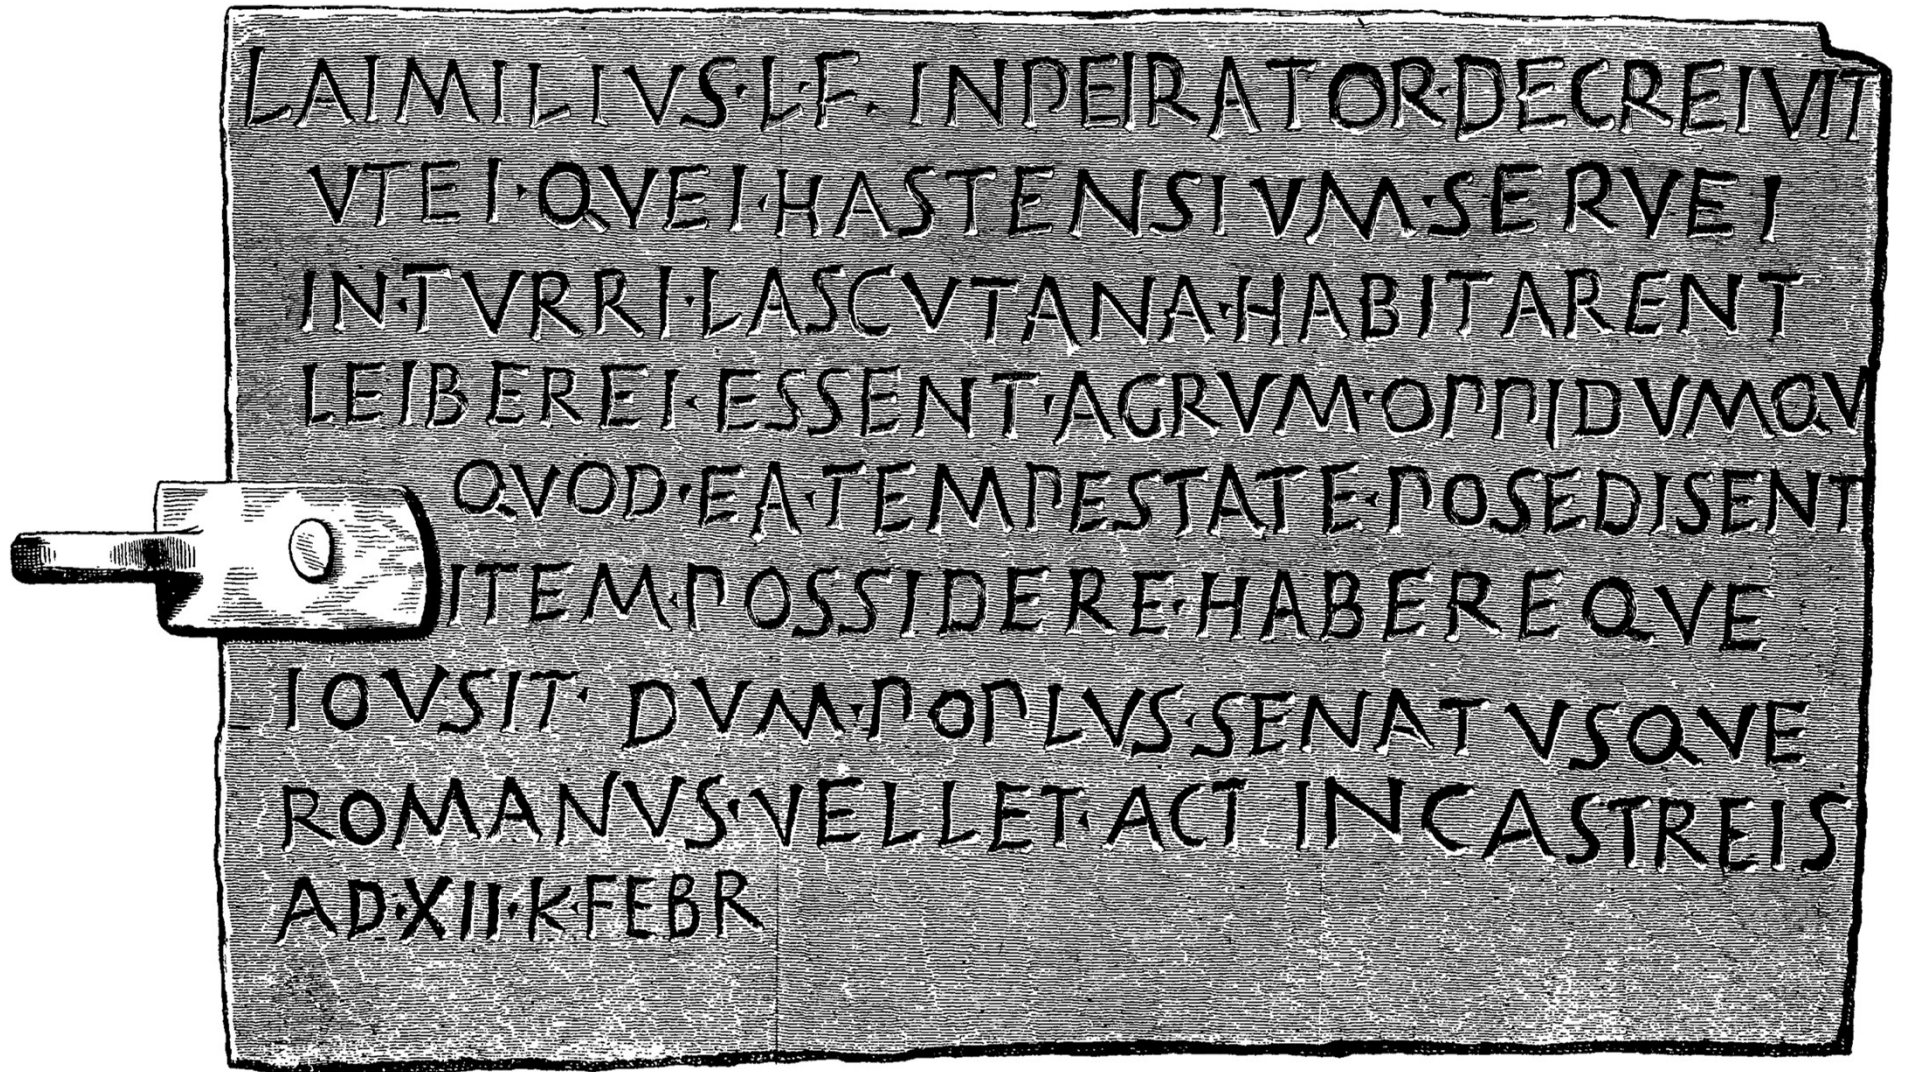 LAIMILIVS·L·F· INPEIRATOR·DECREIVIT
VTEI·QVEI·HASTENSIVM·SERVEI
IN·TVRRI·LASCVTANA·HABITARENT
LEIBEREI·ESSENT·AGRVM·OPPIDVMQV
QVOD·EA·TEMPESTATE·POSEDISENT
ITEM·POSSIDERE·HABEREQVE
IOVSIT· DVM·POPLVS·SENATVSQVE
ROMANVS·VELLET·ACT INCASTREIS
AD·XII·K·FEBR